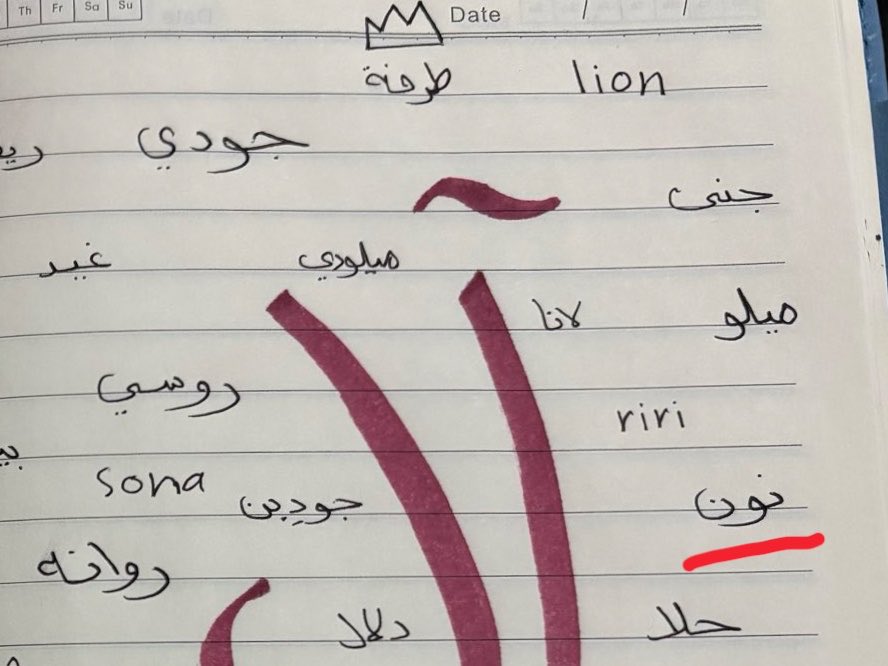 Th Fr Sa Su
Date / /
lion طرفة
جودي
جنى
ميلودي غيد
ميلو لانا
روسي
riri
sona
نون جودين
روانه
حلا دلال